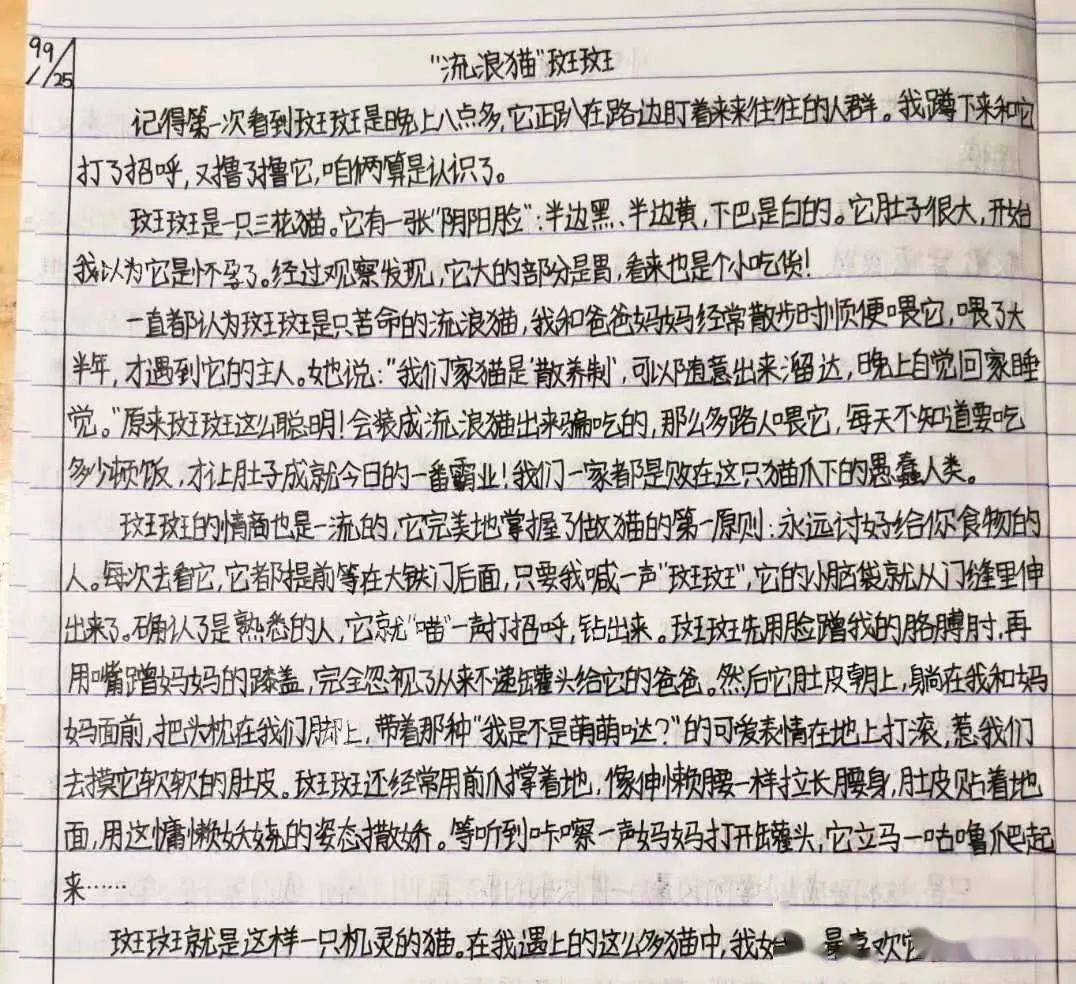 99
1/25
"流浪猫"斑斑
记得第一次看到斑斑是晚上八点多,它正趴在路边盯着来来往往的人群。我蹲下来和它
打了招呼,又撸了撸它,咱俩算是认识了。
斑斑是一只三花猫。它有一张"阴阳脸":半边黑、半边黄,下巴是白的。它肚子很大,开始
我以为它是怀孕了。经过观察发现,它大的部分是胃,看来也是个小吃货!
一直都认为斑斑是只苦命的流浪猫,我和爸爸妈妈经常散步时顺便喂它,喂了大
半年,才遇到它的主人。她说:"我们家猫是'散养制',可以随意出来溜达,晚上自觉回家睡
觉。"原来斑斑这么聪明!会装成流浪猫出来骗吃的,那么多路人喂它,每天不知道要吃
多少顿饭,才让肚子成就今日的一番霸业!我们一家都是败在这只猫爪下的愚蠢人类。
斑斑的情商也是一流的,它完美地掌握了做猫的第一原则:永远讨好给你食物的
人。每次去看它,它都提前等在大铁门后面,只要我喊一声"斑斑",它的小脑袋就从门缝里伸
出来了。确认了是熟悉的人,它就"喵"一声打招呼,钻出来。斑斑先用脸蹭我的胳膊肘,再
用嘴蹭妈妈的膝盖,完全忽视了从来不递罐头给它的爸爸。然后它肚皮朝上,躺在我和妈
妈面前,把头枕在我们脚上,带着那种"我是不是萌萌哒?"的可爱表情在地上打滚,惹我们
去摸它软软的肚皮。斑斑还经常用前爪撑着地,像伸懒腰一样拉长腰身,肚皮贴着地
面,用这慵懒妖娆的姿态撒娇。等听到咔嚓一声妈妈打开罐头,它立马一咕噜爬起
来……
斑斑就是这样一只机灵的猫。在我遇上的这么多猫中,我 最喜欢它